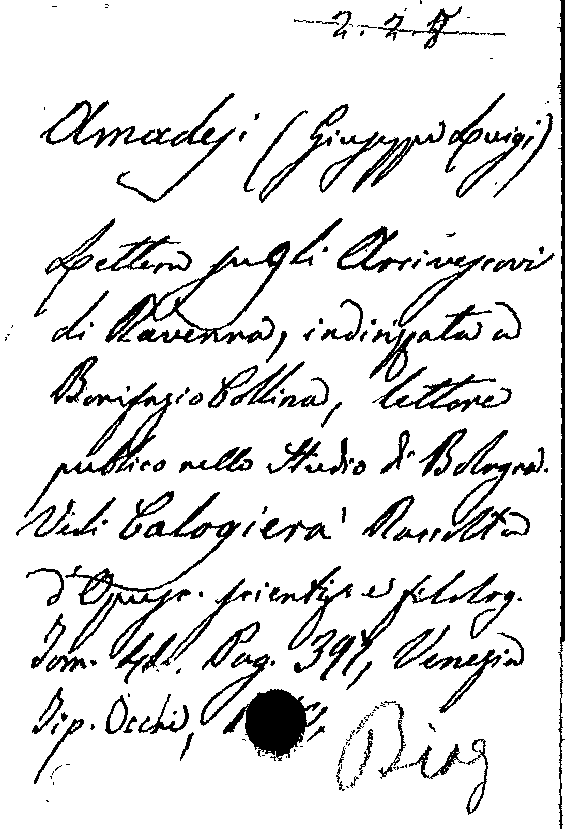 2. 2. 8
Amadesi (Giuseppe Luigi)
Lettera sugli Arcivescovi
di Ravenna, indirizzata a
Bonifazio Collina, lettore
publico nello Studio di Bologna.
Vedi Calogierà Raccolta
d'Opusc. scientif. e filolog.
Tom. Pag. 397, Venezia
Tip. Occhi,
Biog